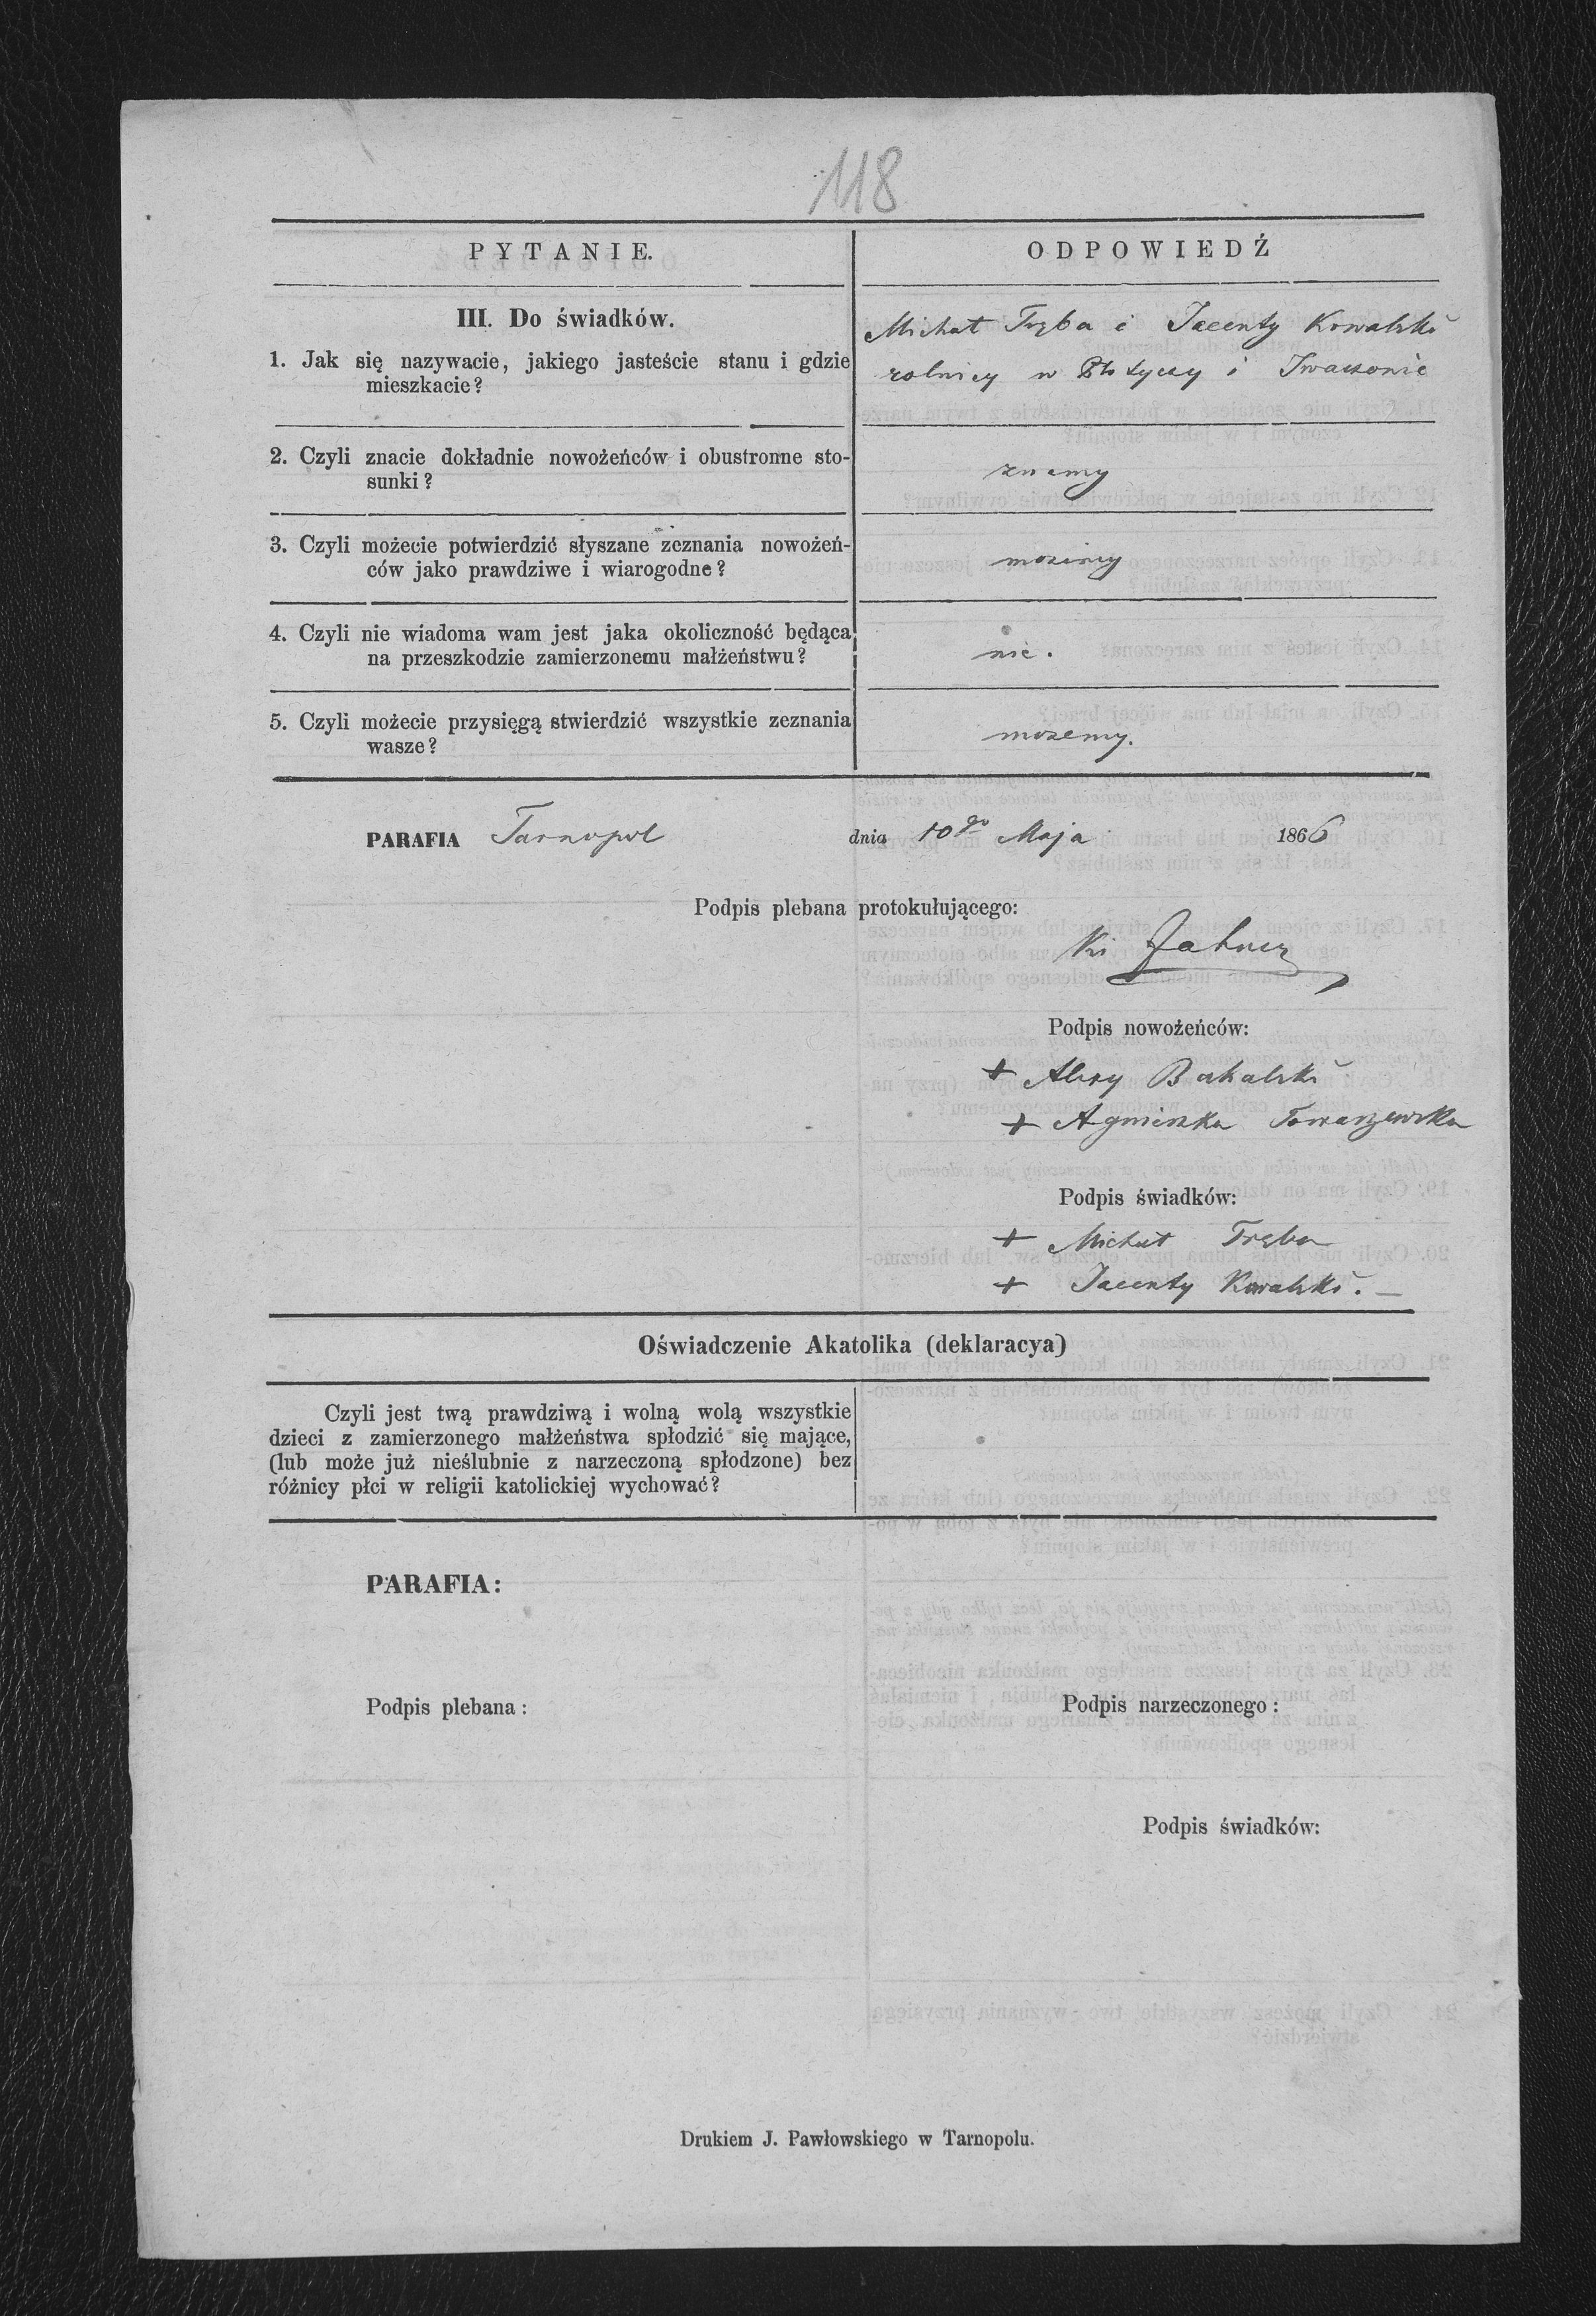 118
PYTANIE.
ODPOWIEDŹ
III. Do świadków.
1. Jak się nazywacie, jakiego jasteście stanu i gdzie
mieszkacie?
Michał Tręba i Jacenty Kowalski
rolnicy w Płotyczy i
2. Czyli znacie dokładnie nowożeńców i obustronne sto-
sunki?
znamy
3. Czyli możecie potwierdzić słyszane zeznania nowożeń-
ców jako prawdziwe i wiarogodne?
możemy
4. Czyli nie wiadoma wam jest jaka okoliczność będąca
na przeszkodzie zamierzonemu małżeństwu?
nie.
5. Czyli możecie przysięgą stwierdzić wszystkie zeznania
wasze?
możemy.
PARAFIA Tarnopol dnia 10go Maja 1866
Podpis plebana protokułującego:
Podpis nowożeńców:
+ Alexy Bakalski
+ Agnieszka
Podpis świadków:
+ Michał Tręba
+ Jacenty Kowalski. —
Oświadczenie Akatolika (deklaracya)
Czyli jest twą prawdziwą i wolną wolą wszystkie
dzieci z zamierzonego małżeństwa spłodzić się mające,
(lub może już nieślubnie z narzeczoną spłodzone) bez
różnicy płci w religii katolickiej wychować?
PARAFIA:
Podpis plebana:
Podpis narzeczonego:
Podpis świadków:
Drukiem J. Pawłowskiego w Tarnopolu.